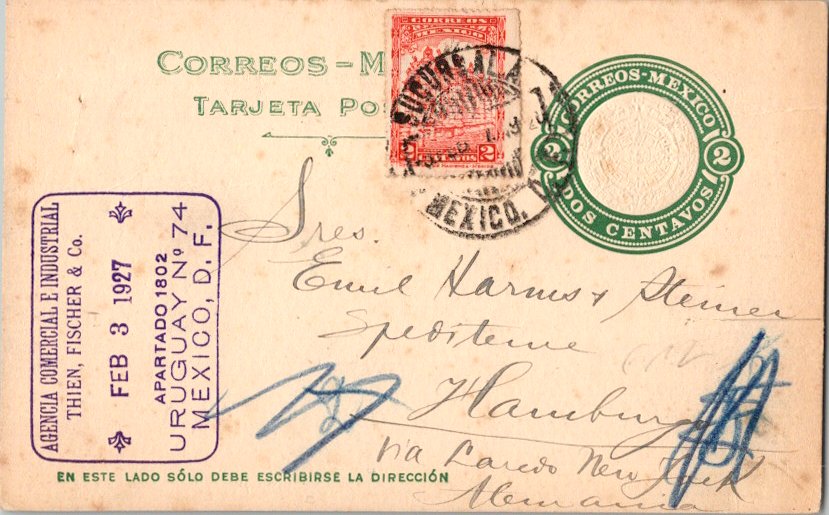 CORREOS-M
TARJETA PO
CORREOS
MEXICO
2 2
SUCURSAL A
MEXICO, D.F.
CORREOS-MEXICO
2 2
DOS CENTAVOS
AGENCIA COMERCIAL E INDUSTRIAL
THIEN, FISCHER & Co.
FEB 3 1927
APARTADO 1802
URUGUAY Nº 74
MEXICO, D. F.
Sres.
Emil Harms & Steiner
Spediteure
Hamburgo
Via Laredo New York
Alemania
EN ESTE LADO SÓLO DEBE ESCRIBIRSE LA DIRECCIÓN